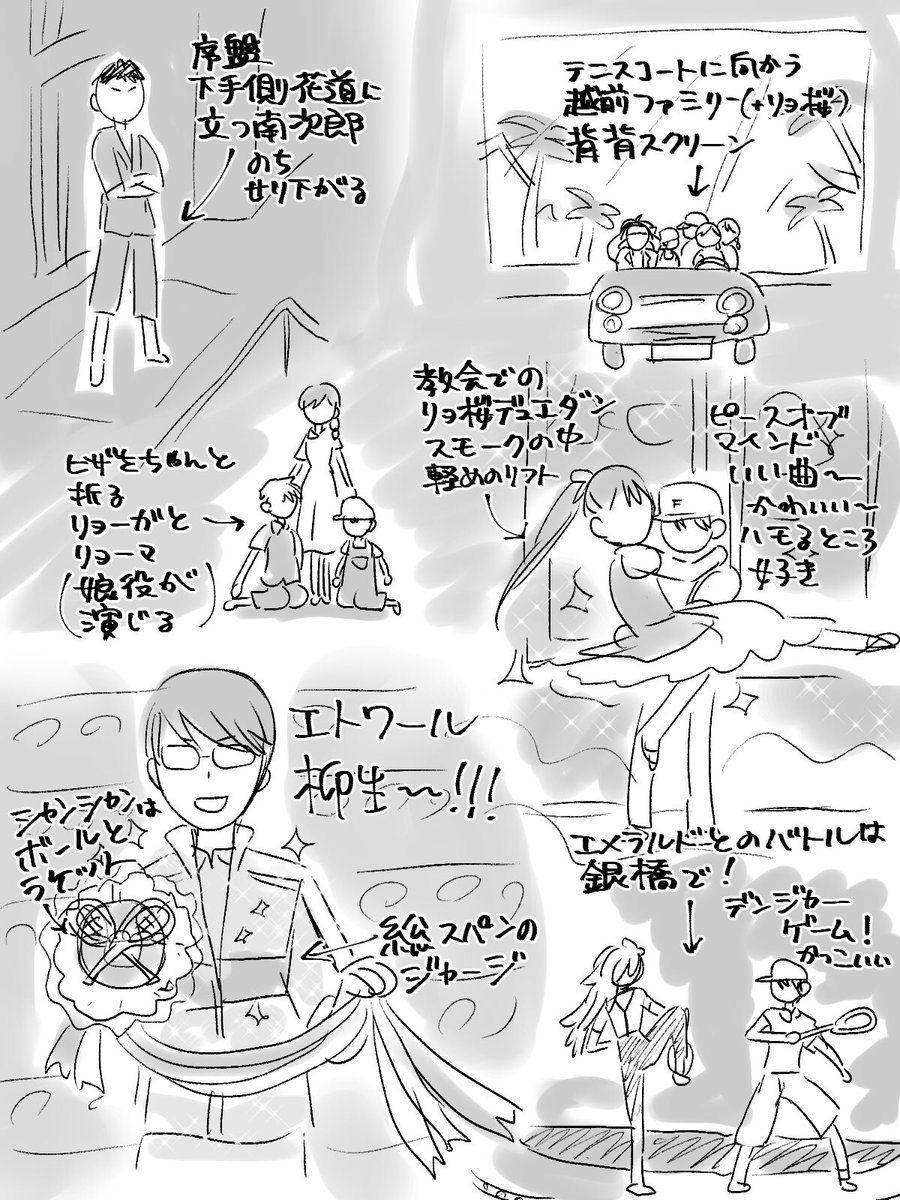 序盤
下手側花道に
立つ南次郎
のち
せり下がる
テニスコートに向かう
越前ファミリー(+リョ桜)
背背スクリーン
教会での
リョ桜デュエダン
スモークの中
軽めのリフト
ピースオブ
マインド
いい曲〜
かわいい〜
ハモるところ
好き
ヒザをちゃんと
折る
リョーガと
リョーマ
(娘役が
演じる)
エトワール
柳生〜!!!
シャンシャンは
ボールと
ラケット
総スパンの
ジャージ
エメラルドとのバトルは
銀橋で!
デンジャー
ゲーム!
かっこいい
F